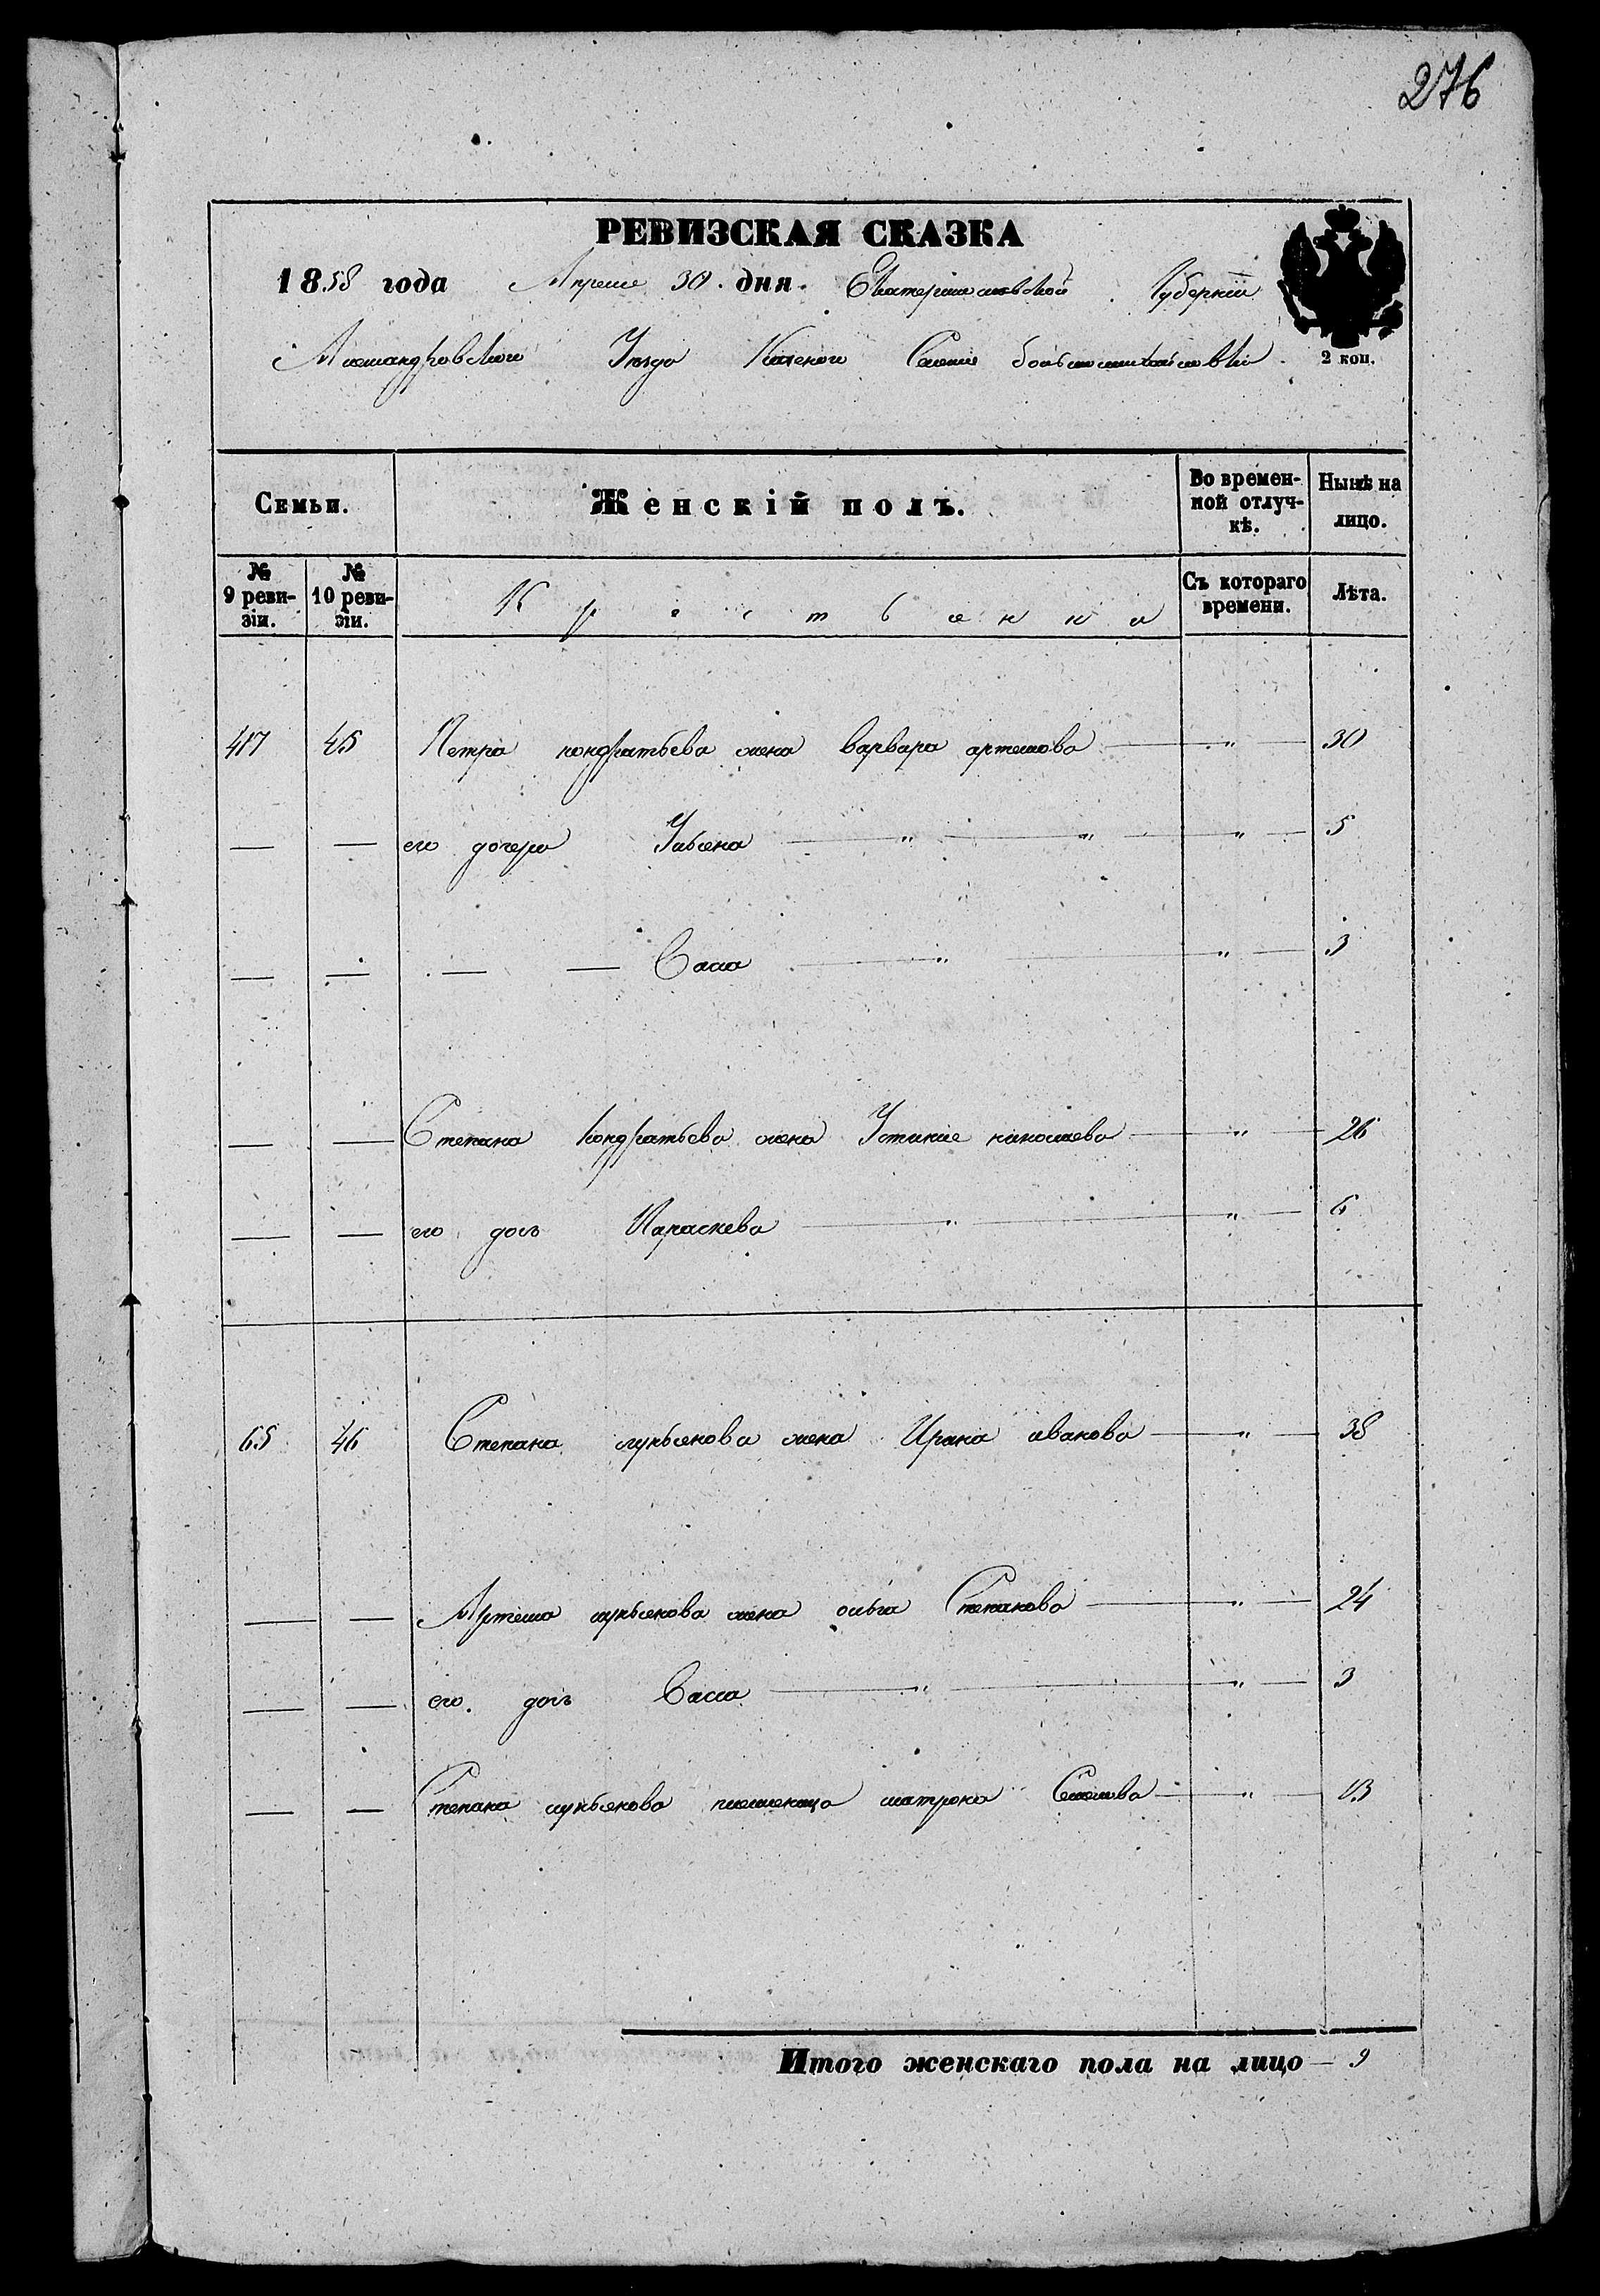 276
РЕВИЗСКАЯ СКАЗКА
1858 года Апреля 30 дня. Екатеринославской Губернiи
Александровского Уезда Казеного Селения большемихайловки
2 коп.
Семьи.
Женскiй полъ.
Во времен-
ной отлуч-
кѣ.
Нынѣ на
лицо.
№
9 реви-
зiи.
№
10 реви-
зiи.
Съ котораго
времени.
Лѣта.
417 45 Петра кондратьева жена варвара артемова — " — 30
— — его дочери Ульяна — " — " — " — 5
— — — — Васса — " — " — 3
— — Степана кондратьева жена Устиния николаева — " — 26
— — его дочь Параскева — " — " — 6
65 46 Степана лукьянова жена Ирина иванова — " — 38
— — Артема лукьянова жена ольга Степанова — " — 24
— — его дочь Васса — " — " — 3
— — Степана лукьянова племеница матрона — " — 13
Итого женскаго пола на лицо — 9